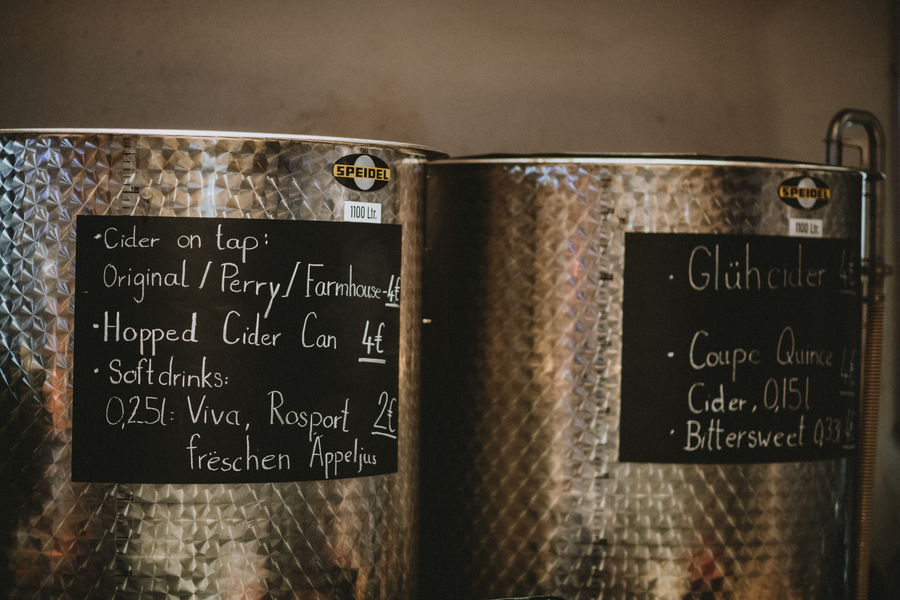 SPEIDEL
1100 Ltr.
• Cider on tap:
Original / Perry / Farmhouse - 4€
• Hopped Cider Can 4€
• Softdrinks:
0,25l: Viva, Rosport 2€
frëschen Äppeljus
SPEIDEL
1100 Ltr.
• Glühcider 4€
• Coupe Quince 4€
Cider, 0,15l
• Bittersweet 0,33l